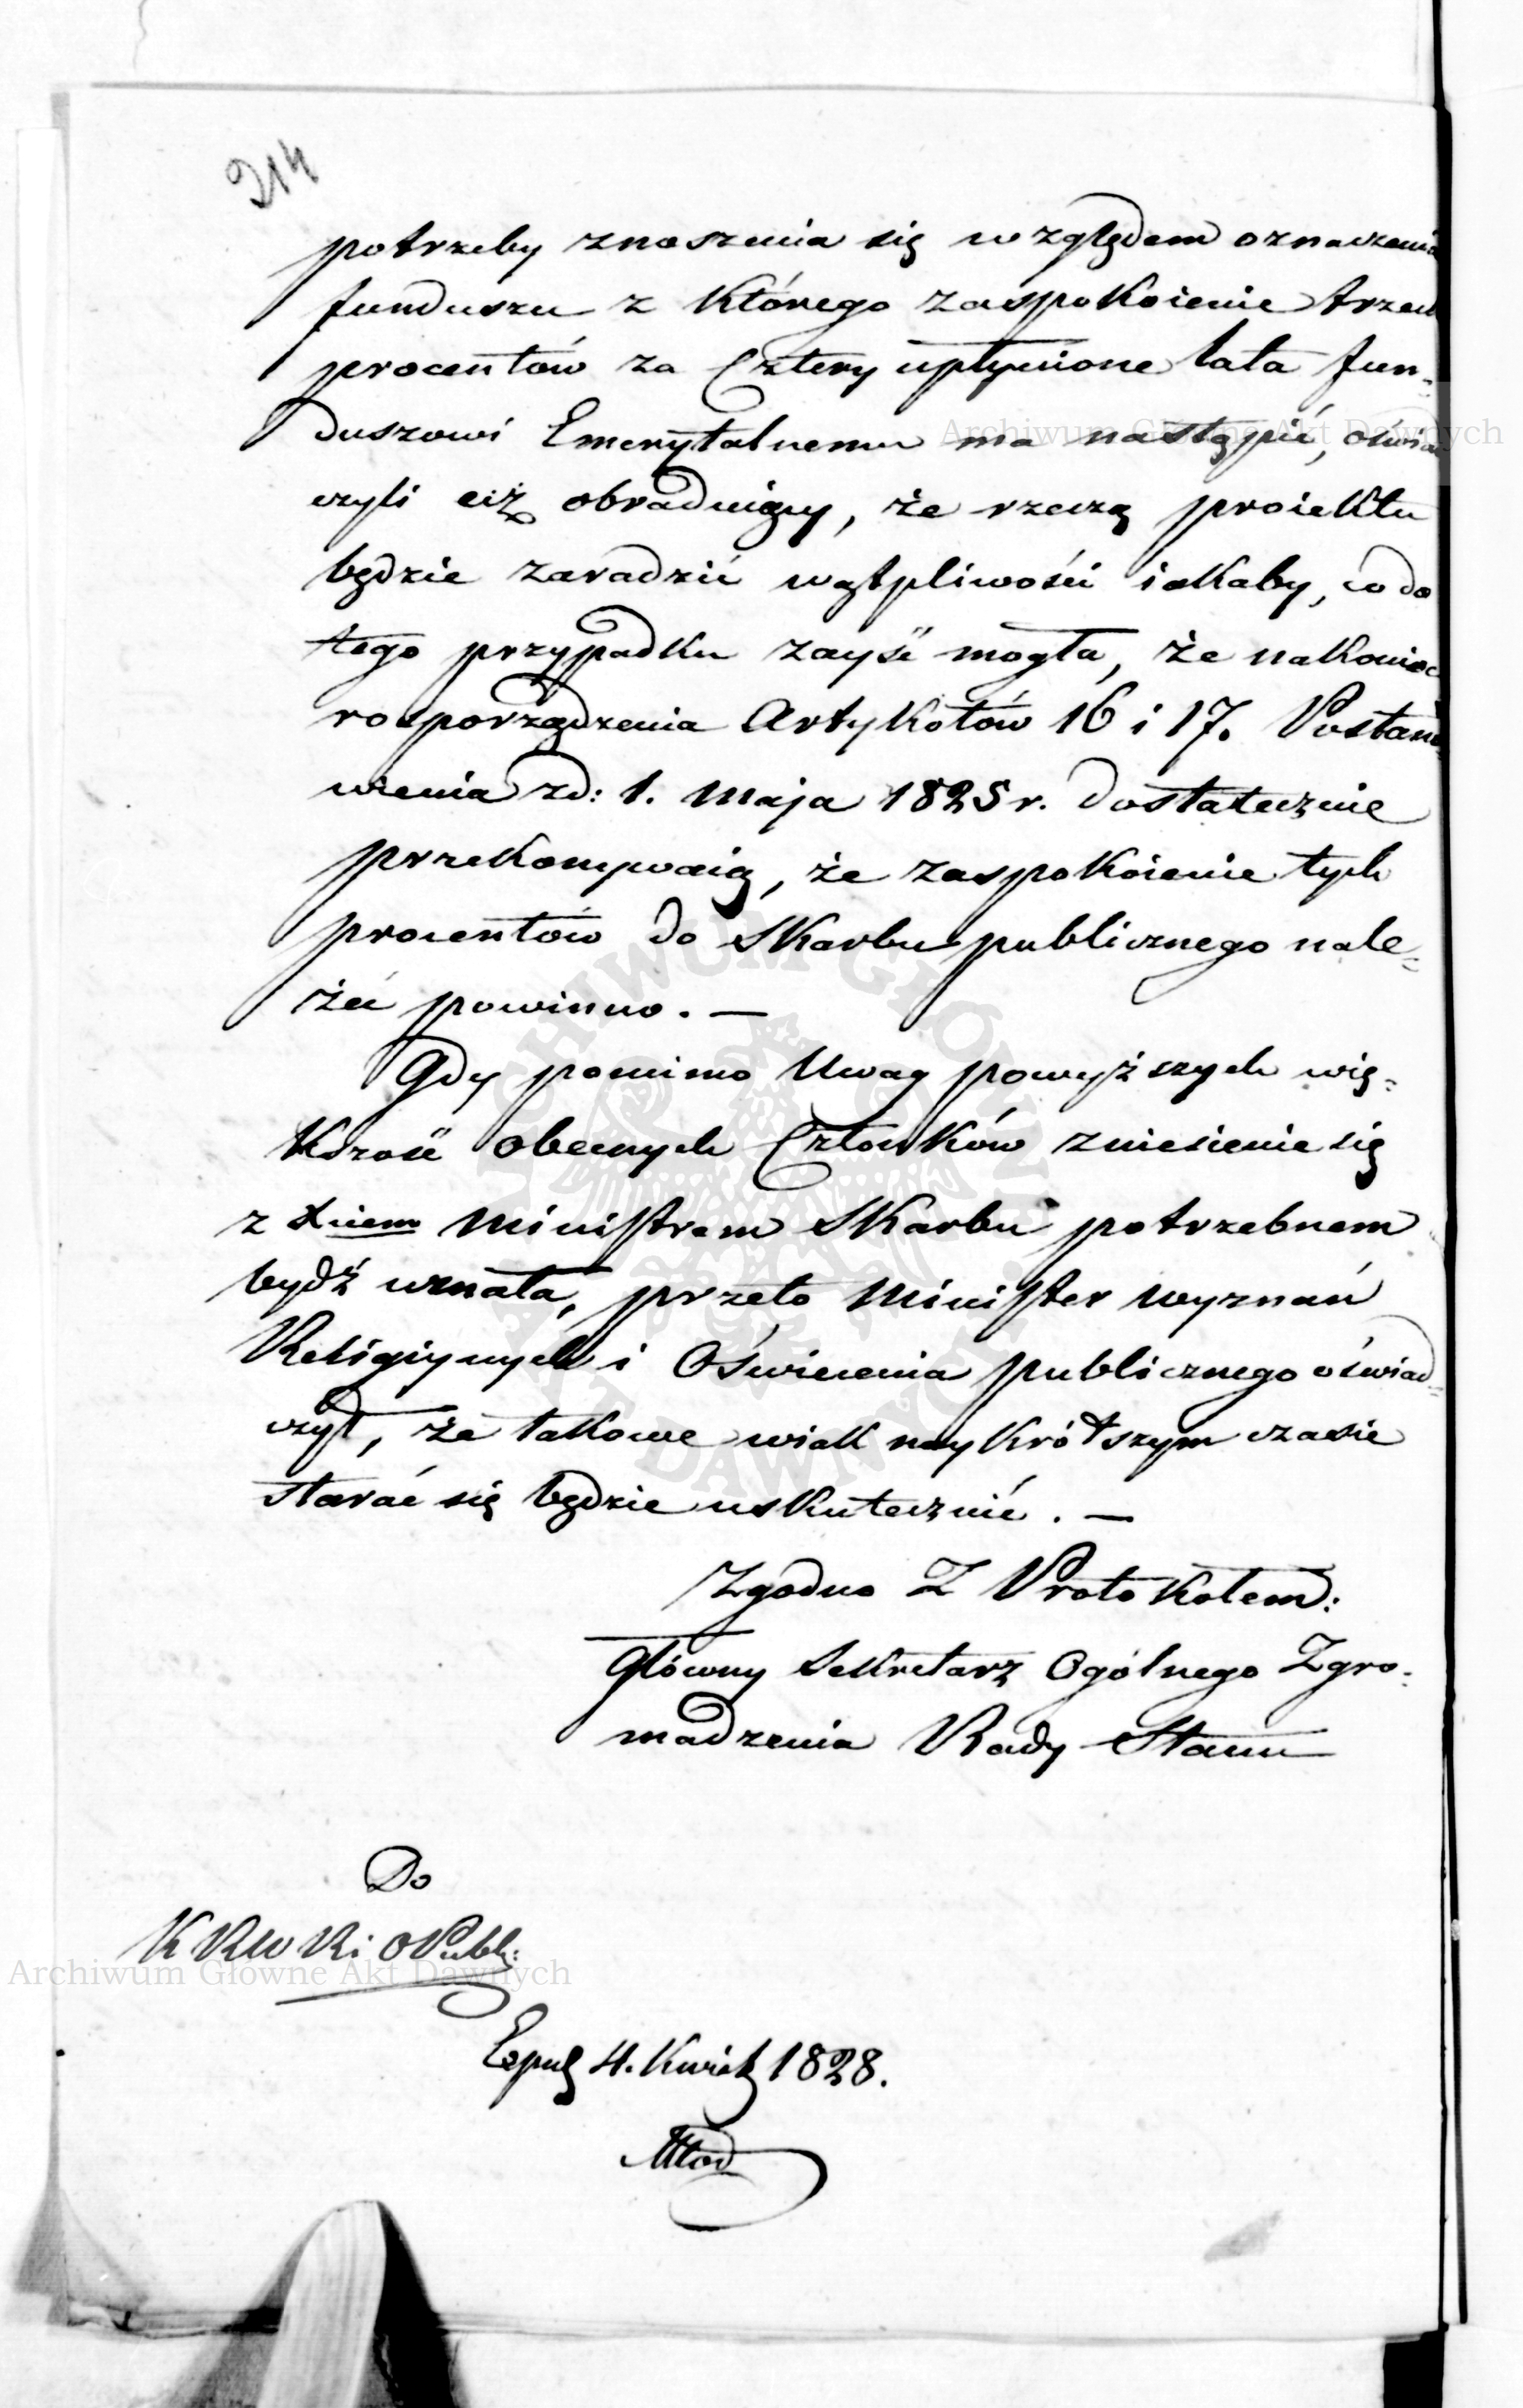 214
potrzeby znoszenia się względem oznaczenia
funduszu z którego zaspokoienie trzech
procentów za Cztery upłynione lata fun=
duszowi Emerytalnemu ma nastąpić, oświad
czyli ciż obraduiący, że rzeczą proiektu
będzie zaradzić wątpliwości iakaby, co do
tego przypadku zayść mogła, że nakoniec
rosporządzenia Artykołów 16 i 17. Postano
wienia zd: 1. Maja 1825 r. dostatecznie
przekonywaią, że zaspokoienie tych
procentów do Skarbu publicznego nale=
żeć powinno. —
Gdy pomimo Uwag powyższych wię=
kszość obecnych Członków zniesienie się
z Xciem Ministrem Skarbu potrzebnem
bydź uznała, przeto Minister Wyznań
Religiynych i Oświecenia publicznego oświad=
czył, że takowe wiak naykrótszym czasie
starać się będzie uskutecznić. —
Zgodno Z Protokołem:
Główny Sekretarz Ogólnego Zgro=
madzenia Rady Stanu
Do
K R W R i O Publ:
4. Kwiet 1828.
Archiwum Główne Akt Dawnych
Archiwum Główne Akt Dawnych
ARCHIWUM GŁÓWNE AKT DAWNYCH